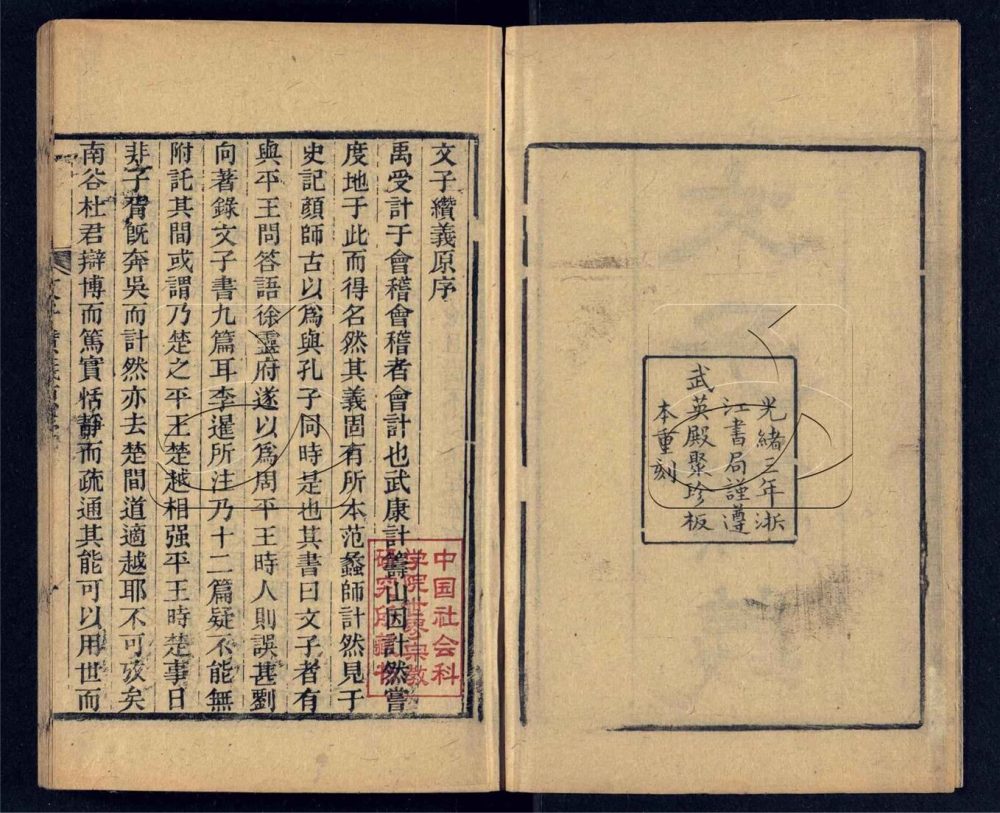 光緒三年浙
江書局謹遵
武英殿聚珍板
本重刻
文子纘義原序
禹受計于會稽會稽者會計也武康計籌山因計然嘗
度地于此而得名然其義固有所本范蠡師計然見于
史記顏師古以爲與孔子同時是也其書曰文子者有
與平王問答語徐靈府遂以爲周平王時人則誤甚劉
向著錄文子書九篇耳李暹所注乃十二篇疑不能無
附託其間或謂乃楚之平王楚越相强平王時楚事日
非子胥旣奔吳而計然亦去楚間道適越耶不可攷矣
南谷杜君辯博而篤實恬靜而疏通其能可以用世而
中国社会科
学院世界宗教
研究所藏书